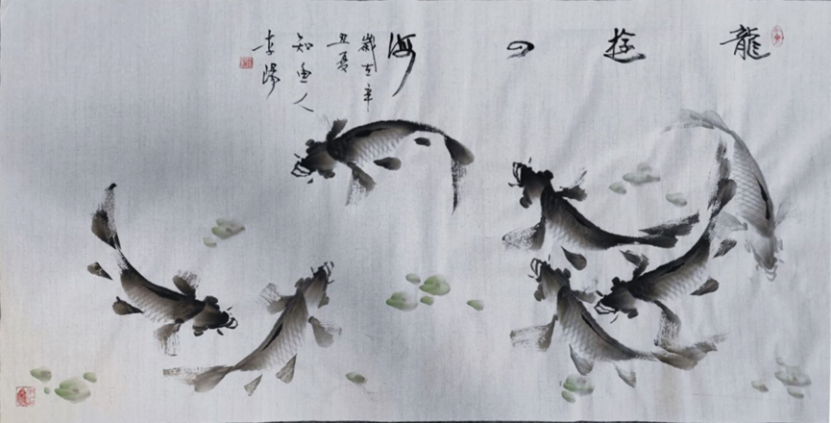 龍游四海
歲在辛
丑夏
知魚人
李陽